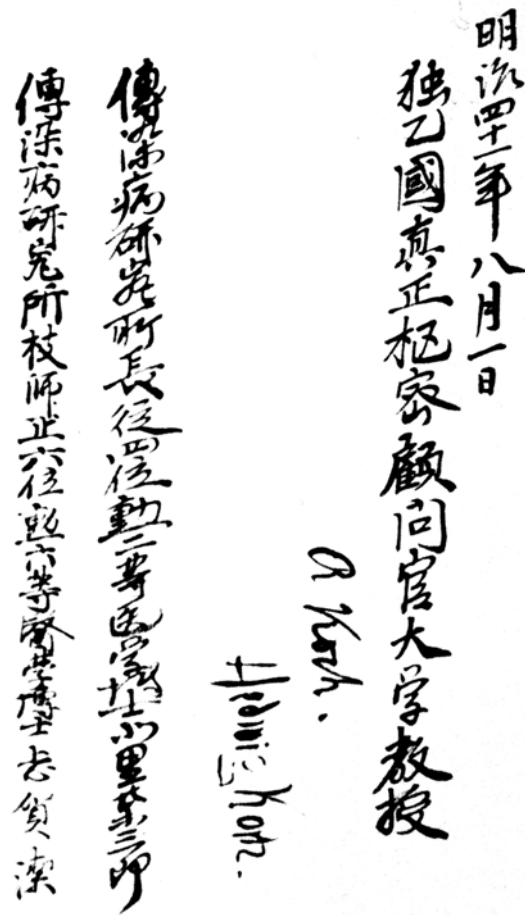 明治四十一年八月一日
独乙國真正枢密顧問官大学教授
R Koch.
Hedwig Koch.
傳染病研究所長従四位勲二等医学博士北里柴三郎
傳染病研究所技師正六位勲六等醫学博士志賀潔